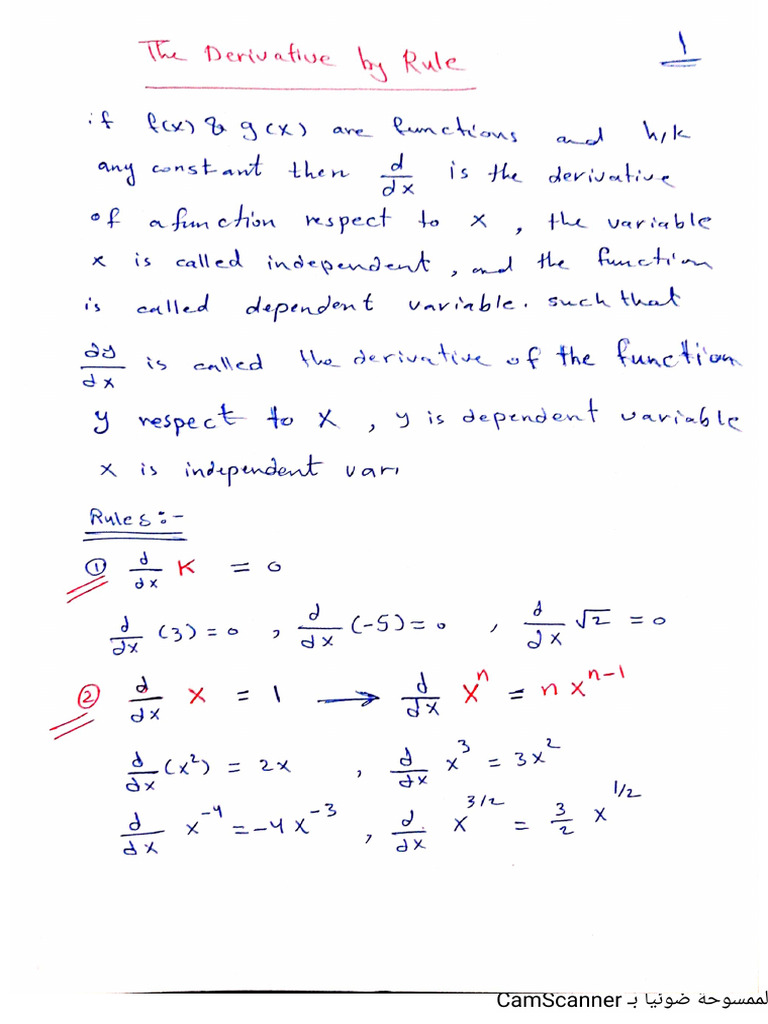 The Derivative by Rule
١
if f(x) & g(x) are functions and h,k
any constant then d/dx is the derivative
of a function respect to x , the variable
x is called independent , and the function
is called dependent variable. such that
dy/dx is called the derivative of the function
y respect to x , y is dependent variable
x is independent vari
Rules:-
① d/dx K = 0
d/dx (3) = 0 , d/dx (-5) = 0 , d/dx √2 = 0
② d/dx x = 1 → d/dx xⁿ = n xⁿ⁻¹
d/dx (x²) = 2x , d/dx x³ = 3x²
d/dx x⁻⁴ = -4x⁻³ , d/dx x^3/2 = 3/2 x^1/2
لممسوحة ضوئيا بـ CamScanner